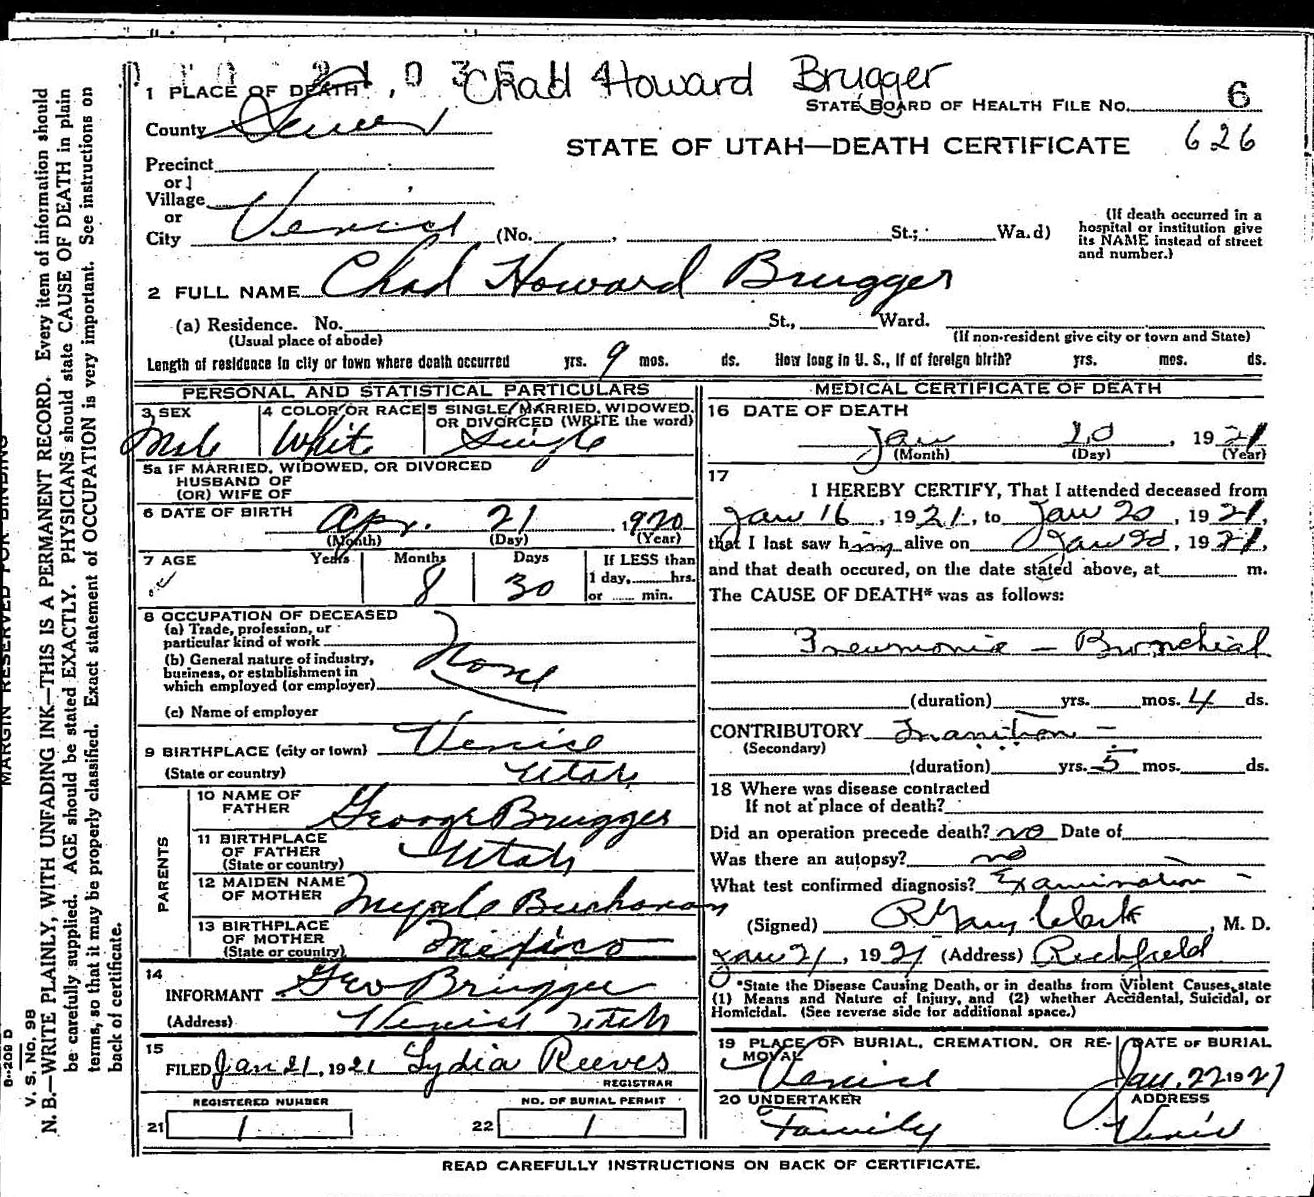 Chad Howard Brugger
1 PLACE OF DEATH
STATE BOARD OF HEALTH FILE No. 6
County Sevier
STATE OF UTAH—DEATH CERTIFICATE 626
Precinct
or
Village
or
City Venice (No. , St.; Wa.d)
(If death occurred in a hospital or institution give its NAME instead of street and number.)
2 FULL NAME Chad Howard Brugger
(a) Residence. No. St., Ward.
(Usual place of abode) (If non-resident give city or town and State)
Length of residence in city or town where death occurred yrs. 9 mos. ds. How long in U. S., if of foreign birth? yrs. mos. ds.
PERSONAL AND STATISTICAL PARTICULARS
3 SEX 4 COLOR OR RACE 5 SINGLE, MARRIED, WIDOWED, OR DIVORCED (WRITE the word)
Male White Single
5a IF MARRIED, WIDOWED, OR DIVORCED
HUSBAND OF
(OR) WIFE OF
6 DATE OF BIRTH Apr. 21, 1920
(Month) (Day) (Year)
7 AGE Years Months Days If LESS than
1 day, hrs.
8 30 or min.
8 OCCUPATION OF DECEASED
(a) Trade, profession, or
particular kind of work
(b) General nature of industry,
business, or establishment in
which employed (or employer) None
(c) Name of employer
9 BIRTHPLACE (city or town) Venice
(State or country) Utah
PARENTS
10 NAME OF
FATHER George Brugger
11 BIRTHPLACE
OF FATHER
(State or country) Utah
12 MAIDEN NAME
OF MOTHER Myrtle Buchanan
13 BIRTHPLACE
OF MOTHER
(State or country) Mexico
14
INFORMANT Geo Brugger
(Address) Venice Utah
15
FILED Jan 21, 1921 Lydia Reeves
REGISTRAR
REGISTERED NUMBER NO. OF BURIAL PERMIT
21 1 22 1
MEDICAL CERTIFICATE OF DEATH
16 DATE OF DEATH
Jan 20, 1921
(Month) (Day) (Year)
17
I HEREBY CERTIFY, That I attended deceased from
Jan 16, 1921, to Jan 20, 1921,
that I last saw him alive on Jan 20, 1921,
and that death occured, on the date stated above, at m.
The CAUSE OF DEATH* was as follows:
Pneumonia — Bronchial
(duration) yrs. mos. 4 ds.
CONTRIBUTORY Inanition —
(Secondary)
(duration) yrs. 5 mos. ds.
18 Where was disease contracted
If not at place of death?
Did an operation precede death? no Date of
Was there an autopsy? no
What test confirmed diagnosis? Examination —
(Signed) R Gary Clark, M. D.
Jan 21, 1921 (Address) Richfield
*State the Disease Causing Death, or in deaths from Violent Causes, state
(1) Means and Nature of Injury, and (2) whether Accidental, Suicidal, or
Homicidal. (See reverse side for additional space.)
19 PLACE OF BURIAL, CREMATION, OR RE- DATE OF BURIAL
MOVAL Venice Jan. 22 1921
20 UNDERTAKER ADDRESS
Family Venice
READ CAREFULLY INSTRUCTIONS ON BACK OF CERTIFICATE.
MARGIN RESERVED FOR BINDING
V. S. No. 98
N. B.—WRITE PLAINLY, WITH UNFADING INK—THIS IS A PERMANENT RECORD. Every item of information should
be carefully supplied. AGE should be stated EXACTLY. PHYSICIANS should state CAUSE OF DEATH in plain
terms, so that it may be properly classified. Exact statement of OCCUPATION is very important. See instructions on
back of certificate.